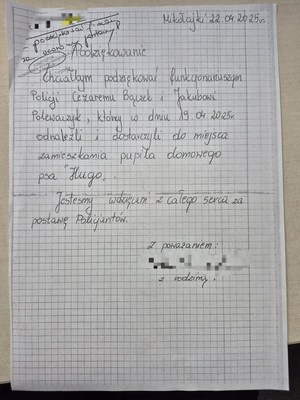 Mikołajki 22.04.2025r.
Podziękowanie
Chciałbym podziękować funkcjonariuszom
Policji Cezaremu Bączek i Jakubowi
Polewaczyk, który w dniu 19.04.2025r.
odnaleźli i dostarczyli do miejsca
zamieszkania pupila domowego
psa "Hugo".
Jesteśmy wdzięczni z całego serca za
postawę Policjantów.
Z poważaniem:
z rodziną.